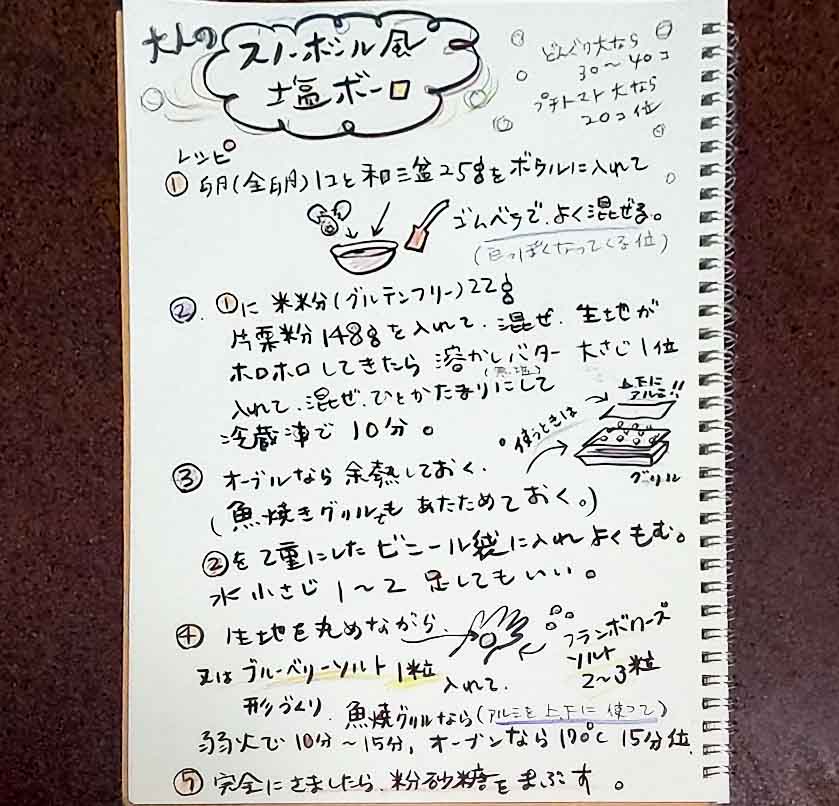 大人の
スノーボール風
塩ボーロ
どんぐり大なら
30〜40コ
プチトマト大なら
20コ位
レシピ
① 卵(全卵)1コと和三盆25gをボウルに入れて
ゴムベラで、よく混ぜる。
(白っぽくなってくる位)
②. ①に 米粉(グルテンフリー)22g
片栗粉148gを入れて、混ぜ、生地が
ホロホロしてきたら 溶かしバター 大さじ1位
(無塩)
入れて、混ぜ、ひとかたまりにして
冷蔵庫で 10分。
上下に
アルミ!!
使うときは
グリル
③ オーブンなら 余熱しておく、
(魚焼きグリルでも あたためておく。)
②を2重にした ビニール袋に入れ よくもむ。
水 小さじ 1〜2 足してもいい。
④ 生地を丸めながら、
フランボワーズ
ソルト
2〜3粒
又は ブルーベリーソルト 1粒
入れて、
形づくり、魚焼グリルなら(アルミを上下に使って)
弱火で 10分〜15分, オーブンなら 170℃ 15分位、
⑤ 完全にさましたら、粉砂糖をまぶす。